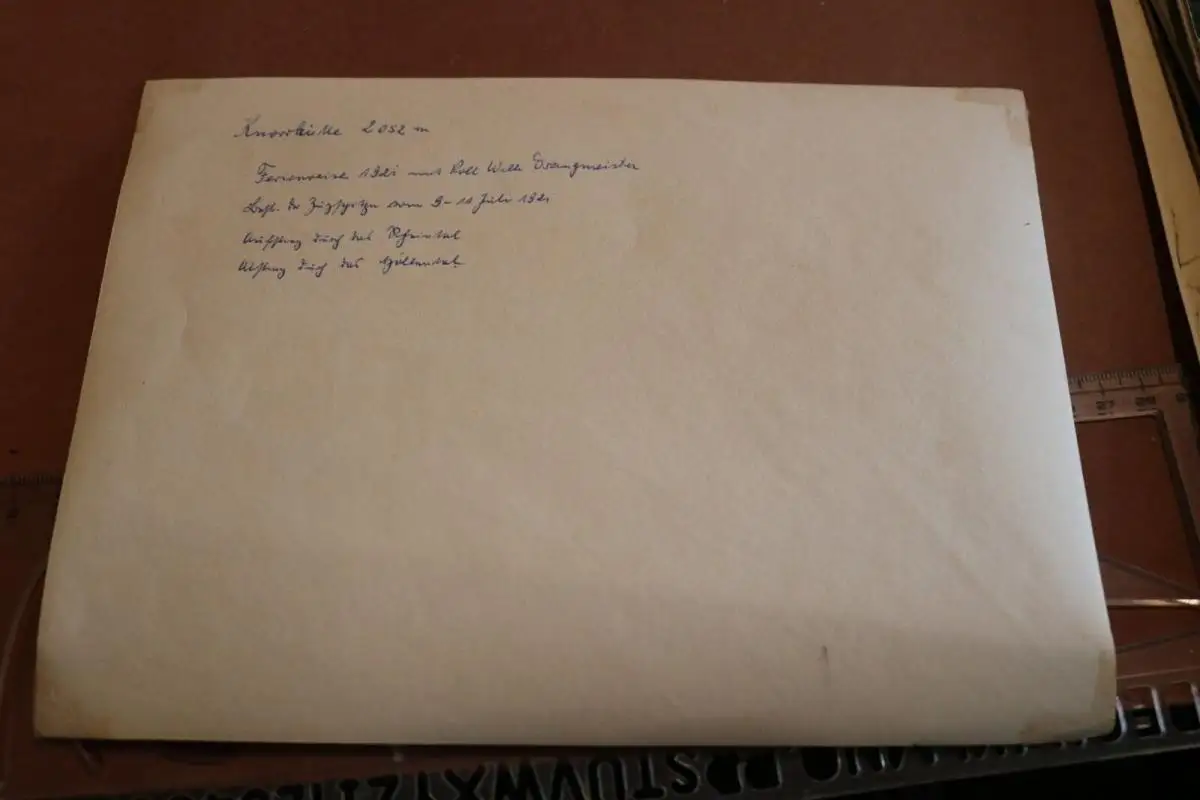 Knorrhütte 2052 m
Ferienreise 1921 mit Willi Drangmeister
Best. der Zugspitze vom 9-11 Juli 1921
Aufstieg durch das Rheintal
Abstieg durch das Höllental
27 28